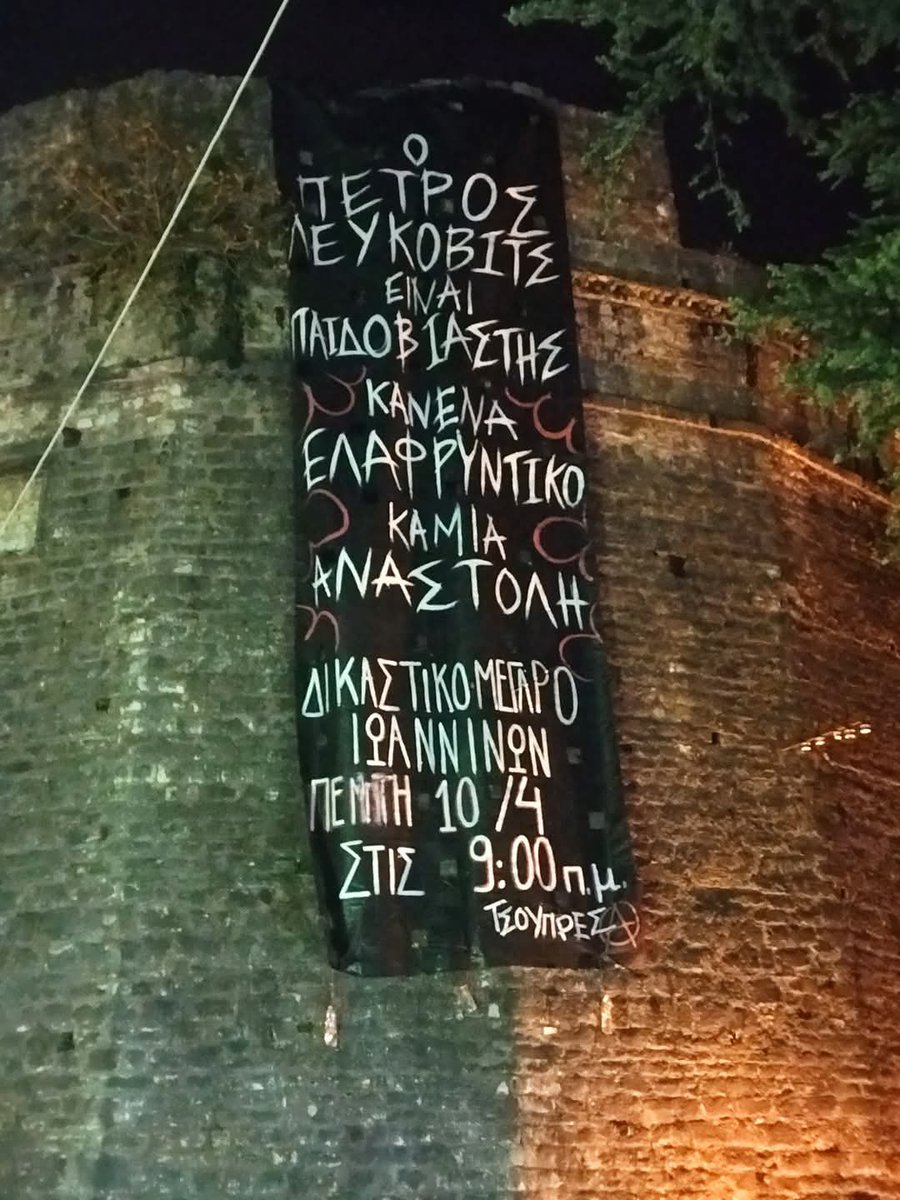 Ο
ΠΕΤΡΟΣ
ΛΕΥΚΟΒΙΤΣ
ΕΙΝΑΙ
ΠΑΙΔΟΒΙΑΣΤΗΣ
ΚΑΝΕΝΑ
ΕΛΑΦΡΥΝΤΙΚΟ
ΚΑΜΙΑ
ΑΝΑΣΤΟΛΗ
ΔΙΚΑΣΤΙΚΟ ΜΕΓΑΡΟ
ΙΩΑΝΝΙΝΩΝ
ΠΕΜΠΤΗ 10/4
ΣΤΙΣ 9:00 π.μ.
ΤΣΟΥΠΡΕΣ